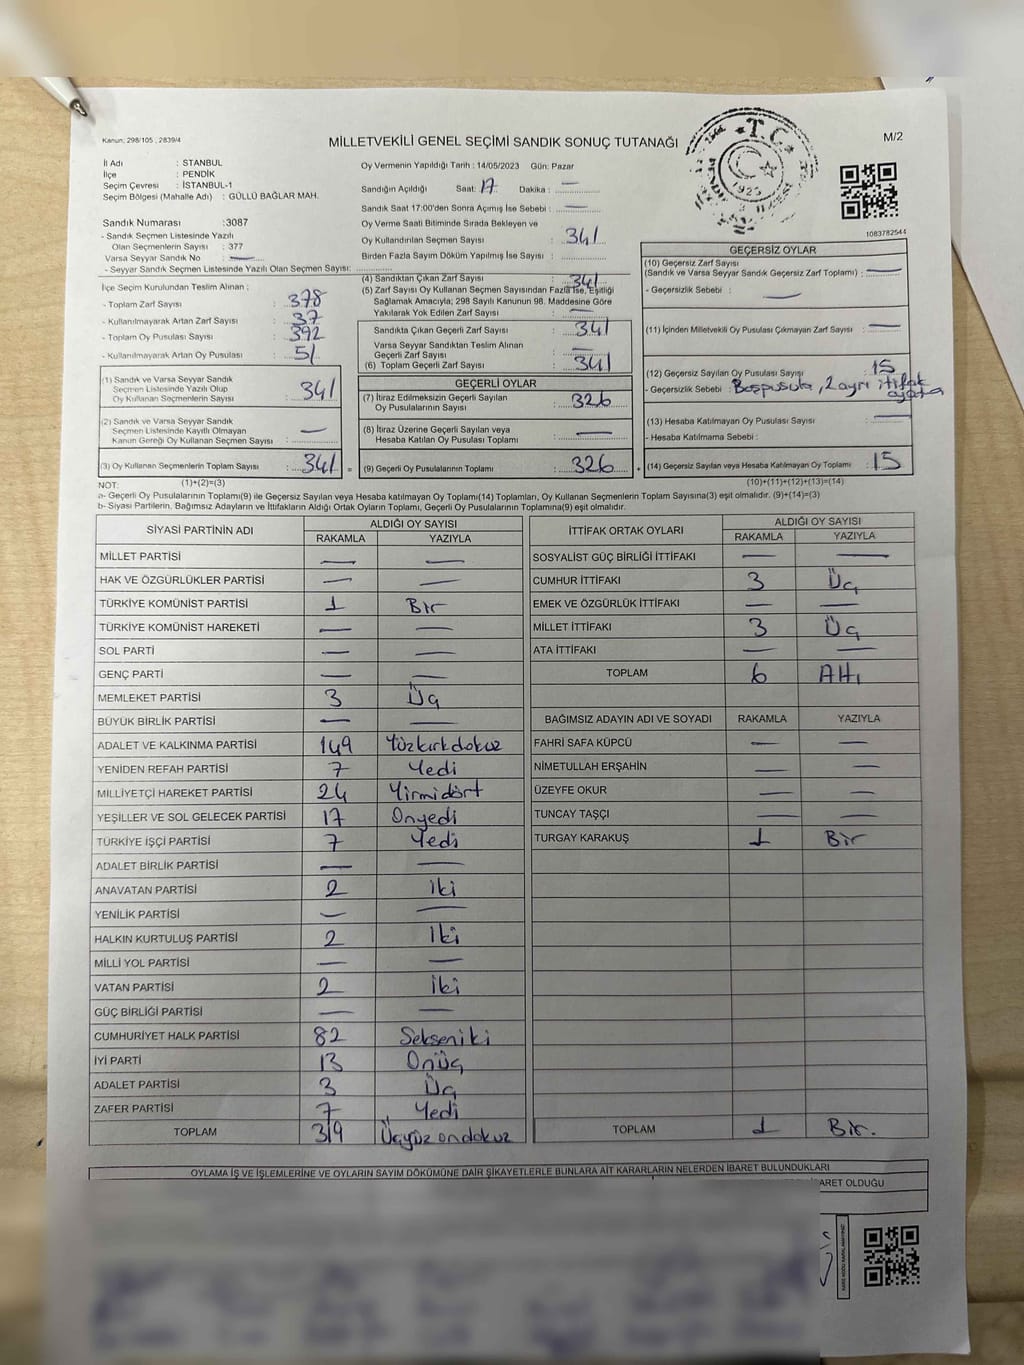 Kanun: 298/105 , 2839/4
MİLLETVEKİLİ GENEL SEÇİMİ SANDIK SONUÇ TUTANAĞI
M/2
T.C.
1923
İl Adı : STANBUL
İlçe : PENDİK
Seçim Çevresi : İSTANBUL-1
Seçim Bölgesi (Mahalle Adı) : GÜLLÜ BAĞLAR MAH.
Sandık Numarası :3087
- Sandık Seçmen Listesinde Yazılı
Olan Seçmenlerin Sayısı : 377
Varsa Seyyar Sandık No : —
- Seyyar Sandık Seçmen Listesinde Yazılı Olan Seçmen Sayısı:
Oy Vermenin Yapıldığı Tarih : 14/05/2023 Gün: Pazar
Sandığın Açıldığı Saat: 17 Dakika : —
Sandık Saat 17:00'den Sonra Açımış İse Sebebi : —
Oy Verme Saati Bitiminde Sırada Bekleyen ve
Oy Kullandırılan Seçmen Sayısı : 341
Birden Fazla Sayım Döküm Yapılmış İse Sayısı :
1083782544
İlçe Seçim Kurulundan Teslim Alınan :
- Toplam Zarf Sayısı : 378
- Kullanılmayarak Artan Zarf Sayısı : 37
- Toplam Oy Pusulası Sayısı : 392
- Kullanılmayarak Artan Oy Pusulası : 51
(1) Sandık ve Varsa Seyyar Sandık
Seçmen Listesinde Yazılı Olup
Oy Kullanan Seçmenlerin Sayısı : 341
(2) Sandık ve Varsa Seyyar Sandık
Seçmen Listesinde Kayıtlı Olmayan
Kanun Gereği Oy Kullanan Seçmen Sayısı : —
(3) Oy Kullanan Seçmenlerin Toplam Sayısı : 341 =
(1)+(2)=(3)
(4) Sandıktan Çıkan Zarf Sayısı : 341
(5) Zarf Sayısı Oy Kullanan Seçmen Sayısından Fazla İse, Eşitliği
Sağlamak Amacıyla; 298 Sayılı Kanunun 98. Maddesine Göre
Yakılarak Yok Edilen Zarf Sayısı : —
Sandıkta Çıkan Geçerli Zarf Sayısı : 341
Varsa Seyyar Sandıktan Teslim Alınan
Geçerli Zarf Sayısı : —
(6) Toplam Geçerli Zarf Sayısı : 341
GEÇERLİ OYLAR
(7) İtiraz Edilmeksizin Geçerli Sayılan
Oy Pusulalarının Sayısı : 326
(8) İtiraz Üzerine Geçerli Sayılan veya
Hesaba Katılan Oy Pusulası Toplamı : —
(9) Geçerli Oy Pusulalarının Toplamı : 326 +
GEÇERSİZ OYLAR
(10) Geçersiz Zarf Sayısı
(Sandık ve Varsa Seyyar Sandık Geçersiz Zarf Toplamı) : —
- Geçersizlik Sebebi : —
(11) İçinden Milletvekili Oy Pusulası Çıkmayan Zarf Sayısı : —
(12) Geçersiz Sayılan Oy Pusulası Sayısı : 15
- Geçersizlik Sebebi : Boşpusula, 2 ayrı ittifak
(13) Hesaba Katılmayan Oy Pusulası Sayısı : —
- Hesaba Katılmama Sebebi :
(14) Geçersiz Sayılan veya Hesaba Katılmayan Oy Toplamı : 15
(10)+(11)+(12)+(13)=(14)
NOT:
a- Geçerli Oy Pusulalarının Toplamı(9) ile Geçersiz Sayılan veya Hesaba katılmayan Oy Toplamı(14) Toplamları, Oy Kullanan Seçmenlerin Toplam Sayısına(3) eşit olmalıdır. (9)+(14)=(3)
b- Siyasi Partilerin, Bağımsız Adayların ve İttifakların Aldığı Ortak Oyların Toplamı, Geçerli Oy Pusulalarının Toplamına(9) eşit olmalıdır.
SİYASİ PARTİNİN ADI ALDIĞI OY SAYISI
RAKAMLA YAZIYLA
MİLLET PARTİSİ — —
HAK VE ÖZGÜRLÜKLER PARTİSİ — —
TÜRKİYE KOMÜNİST PARTİSİ 1 Bir
TÜRKİYE KOMÜNİST HAREKETİ — —
SOL PARTİ — —
GENÇ PARTİ — —
MEMLEKET PARTİSİ 3 Üç
BÜYÜK BİRLİK PARTİSİ — —
ADALET VE KALKINMA PARTİSİ 149 Yüzkırkdokuz
YENİDEN REFAH PARTİSİ 7 Yedi
MİLLİYETÇİ HAREKET PARTİSİ 24 Yirmidört
YEŞİLLER VE SOL GELECEK PARTİSİ 17 Onyedi
TÜRKİYE İŞÇİ PARTİSİ 7 Yedi
ADALET BİRLİK PARTİSİ — —
ANAVATAN PARTİSİ 2 İki
YENİLİK PARTİSİ — —
HALKIN KURTULUŞ PARTİSİ 2 İki
MİLLİ YOL PARTİSİ — —
VATAN PARTİSİ 2 İki
GÜÇ BİRLİĞİ PARTİSİ — —
CUMHURİYET HALK PARTİSİ 82 Sekseniki
İYİ PARTİ 13 Onüç
ADALET PARTİSİ 3 Üç
ZAFER PARTİSİ 7 Yedi
TOPLAM 319 Üçyüzondokuz
İTTİFAK ORTAK OYLARI ALDIĞI OY SAYISI
RAKAMLA YAZIYLA
SOSYALİST GÜÇ BİRLİĞİ İTTİFAKI — —
CUMHUR İTTİFAKI 3 Üç
EMEK VE ÖZGÜRLÜK İTTİFAKI — —
MİLLET İTTİFAKI 3 Üç
ATA İTTİFAKI — —
TOPLAM 6 Altı
BAĞIMSIZ ADAYIN ADI VE SOYADI RAKAMLA YAZIYLA
FAHRİ SAFA KÜPCÜ — —
NİMETULLAH ERŞAHİN — —
ÜZEYFE OKUR — —
TUNCAY TAŞÇI — —
TURGAY KARAKUŞ 1 Bir
TOPLAM 1 Bir.
OYLAMA İŞ VE İŞLEMLERİNE VE OYLARIN SAYIM DÖKÜMÜNE DAİR ŞİKAYETLERLE BUNLARA AİT KARARLARIN NELERDEN İBARET BULUNDUKLARI
İBARET OLDUĞU